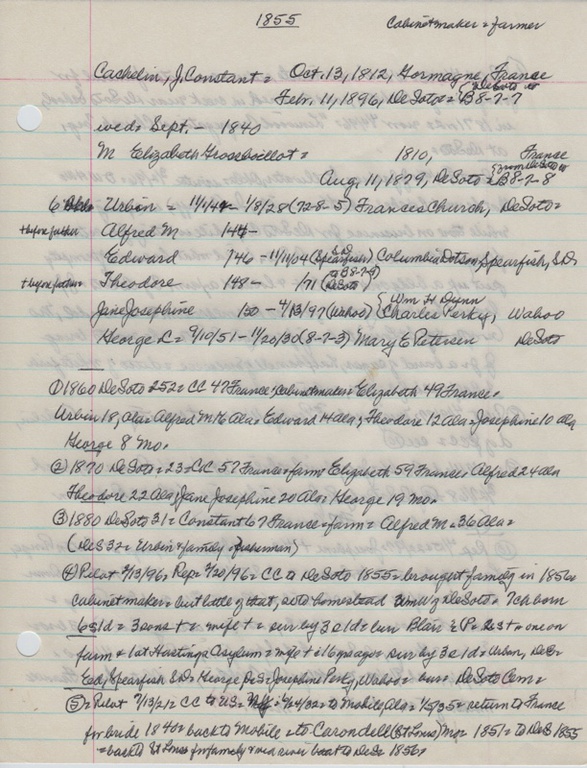 1855 Cabinetmaker = farmer
Cachelin, J. Constant = Oct. 13, 1812, Gormagne, France
Feb. 11, 1896, DeSoto = B8-7-7
wed = Sept. - 1840
M Elizabeth Grosboillot = 1810, France
Aug. 11, 1879, DeSoto = B8-7-8
6 Urbin = 1/1/4 - 1/8/28 (72-8-5) Frances Church, DeSoto =
Alfred M 144-
Edward 746 - 11/11/04 (Spearfish) S.D. Columbia Dotson, Spearfish, S.D.
Theodore 148 - /71 (DeSoto
Jane Josephine 150 - 4/13/97 (Wahoo) Wm H Dunn
Charles Perky, Wahoo
George L = 9/10/51 - 11/20/30 (8-7-3) Mary E Petersen DeSoto
① 1860 DeSoto 252 = CC 47 France, Cabinetmaker = Elizabeth 49 France,
Urbin 18, Ala = Alfred M. 16 Ala = Edward 14 Ala; Theodore 12 Ala = Josephine 10 Ala
George 8 Mo.
② 1870 DeSoto = 23 = CC 57 France = farm = Elizabeth 59 France, Alfred 24 Ala
Theodore 22 Ala; Jane Josephine 20 Ala; George 19 Mo.
③ 1880 DeSoto 31 = Constant 67 France = farm = Alfred M = 36 Ala =
(DeS 32 = Urbin & family fisherman)
④ Pilot 7/13/96 = Rep = 7/20/96 = CC to DeSoto 1855 = brought family in 1856
cabinetmaker = but little of that, so to homestead DeSoto = 7 ch born
6 s 1 d = 3 sons + = wife + = surv by 3 s 1 d = bur one on
farm & 1 at Hastings Asylum = wife + 16 yrs ago = surv by 3 s 1 d = Urban, DeS =
Ed, Spearfish S.D = George DeS = Josephine Perky, Wahoo = bur = DeSoto Cem =
⑤ = Pilot 7/13/21 = CC to US = to Mobile, Ala = = return to France
for bride 1840 = back to Mobile = to Carondell (St Louis) Mo = 1851 = to DeS 1855
= back to St Louis for family & via river boat to DeS = 1856 =